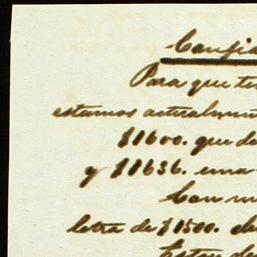 Confid
Para que te
estamos actualmen
$1600. que de
y $1636. una
Con m
letra de $1500. de
Estos de